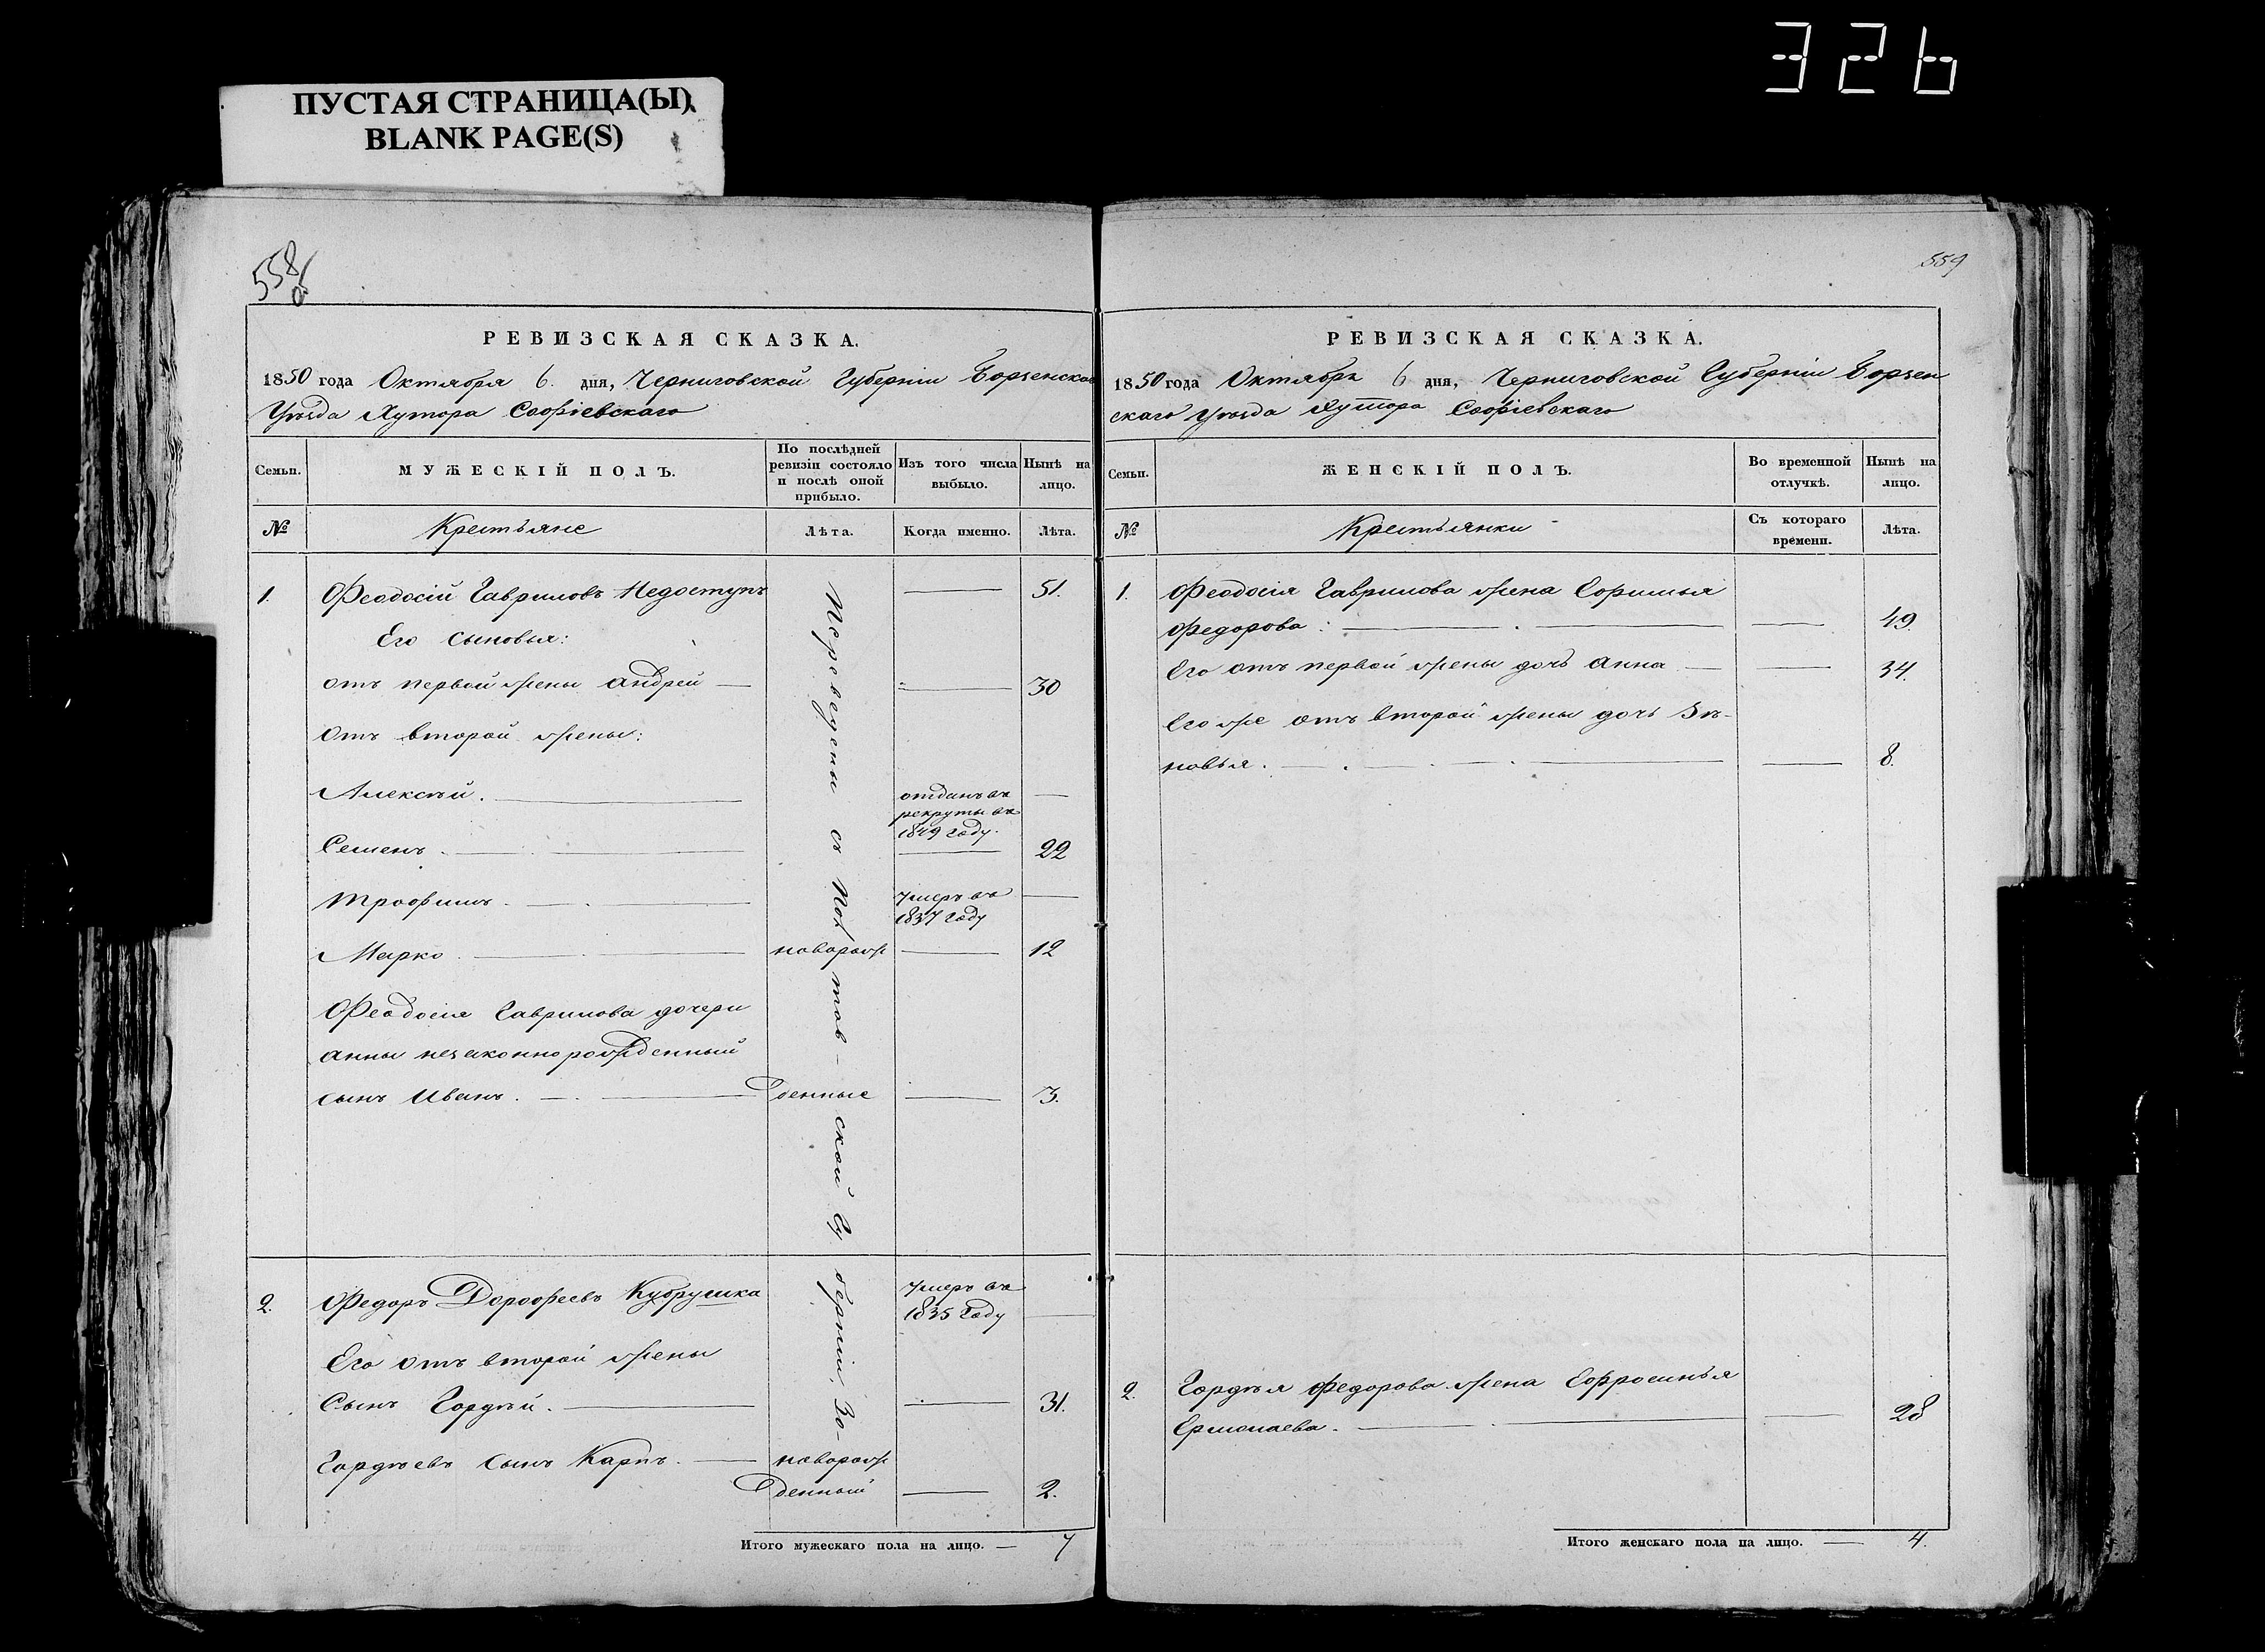 326
ПУСТАЯ СТРАНИЦА(Ы).
BLANK PAGE(S)
558
об
РЕВИЗСКАЯ СКАЗКА.
1850 года Октября 6. дня, Черниговской Губерніи Борзенскаго
Уѣзда Хутора Софіевскаго
Семьи.
МУЖЕСКІЙ ПОЛЪ.
По послѣдней ревизіи состояло и послѣ оной прибыло.
Изъ того числа выбыло.
Нынѣ на лицо.
№
Крестьяне
Лѣта.
Когда именно.
Лѣта.
Переведены съ Полтавской Губерніи, Зо-
1. Феодосій Гавриловъ Недоступъ — 51.
Его сыновья:
отъ первой жены Андрей — — 30
Отъ второй жены:
Алексѣй. — отданъ въ рекруты въ 1849 году. —
Семенъ. — — 22
Трофимъ. — умеръ въ 1837 году —
Марко. — новорож — 12
Феодосія Гаврилова дочери
Анны незаконнорожденный
сынъ Иванъ. — денные — 3.
2. Федоръ Дорофеевъ Кубрушка умеръ въ 1835 году —
Его отъ второй жены
Сынъ Гордѣй. — — 31.
Гордѣевъ сынъ Карпъ. — новорож
денный — 2.
Итого мужескаго пола на лицо. — 7
559
РЕВИЗСКАЯ СКАЗКА.
1850 года Октября 6 дня, Черниговской Губерніи Борзен
скаго Уѣзда Хутора Софіевскаго
Семьи.
ЖЕНСКІЙ ПОЛЪ.
Во временной отлучкѣ.
Нынѣ на лицо.
№
Крестьянки
Съ котораго времени.
Лѣта.
1. Феодосія Гаврилова жена Ефимья
Федорова: — — 49.
Его отъ первой жены дочь Анна — — 34.
Его же отъ второй жены дочь Зѣ-
новья. — — 8.
2. Гордѣя Федорова жена Ефросинья
Ермолаева. — — 28
Итого женскаго пола на лицо. — 4.